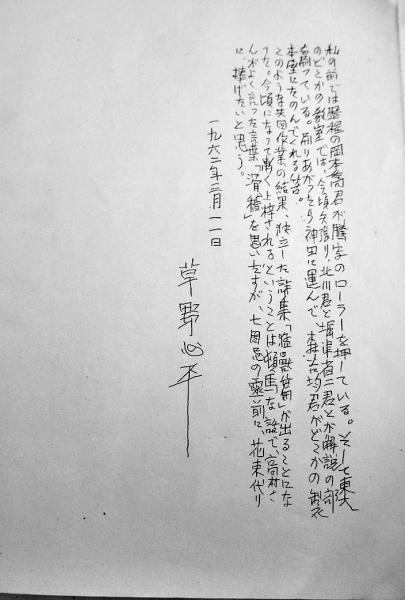 私の前では歴程の岡本喬君が謄写のローラーを押している。そして東大
のどこかの教室では、今頃矢張り、北川君と堀津省二君とが解説の部
を刷っている。刷りあがったら神田に運んで、森谷均君がどこかの製
本屋にたのんでくれる筈。
このような共同作業の結果、独立した詩集「猛獣篇」が出ることにな
った。今頃になって漸く上梓されるということは頓馬な話で、高村さ
んがよく言った言葉「滑稽」を思い出すが、七周忌の霊前に、花束代り
に捧げたいと思う。
一九六二年三月一一日
草野心平